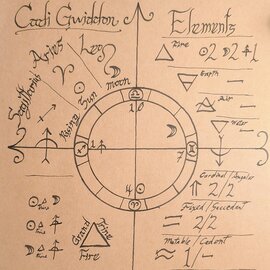 Cadi Gwiddon
Elements
Sagittarius
Aries
Leo
Rising
Sun
moon
Fire
2 2 1
Earth
- - 1
Air
- - -
Water
- - -
10
1
7
4
Cardinal/Angular
2/2
Fixed/Succedent
2/2
Mutable/Cadent
1/-
Grand
Trine
Fire